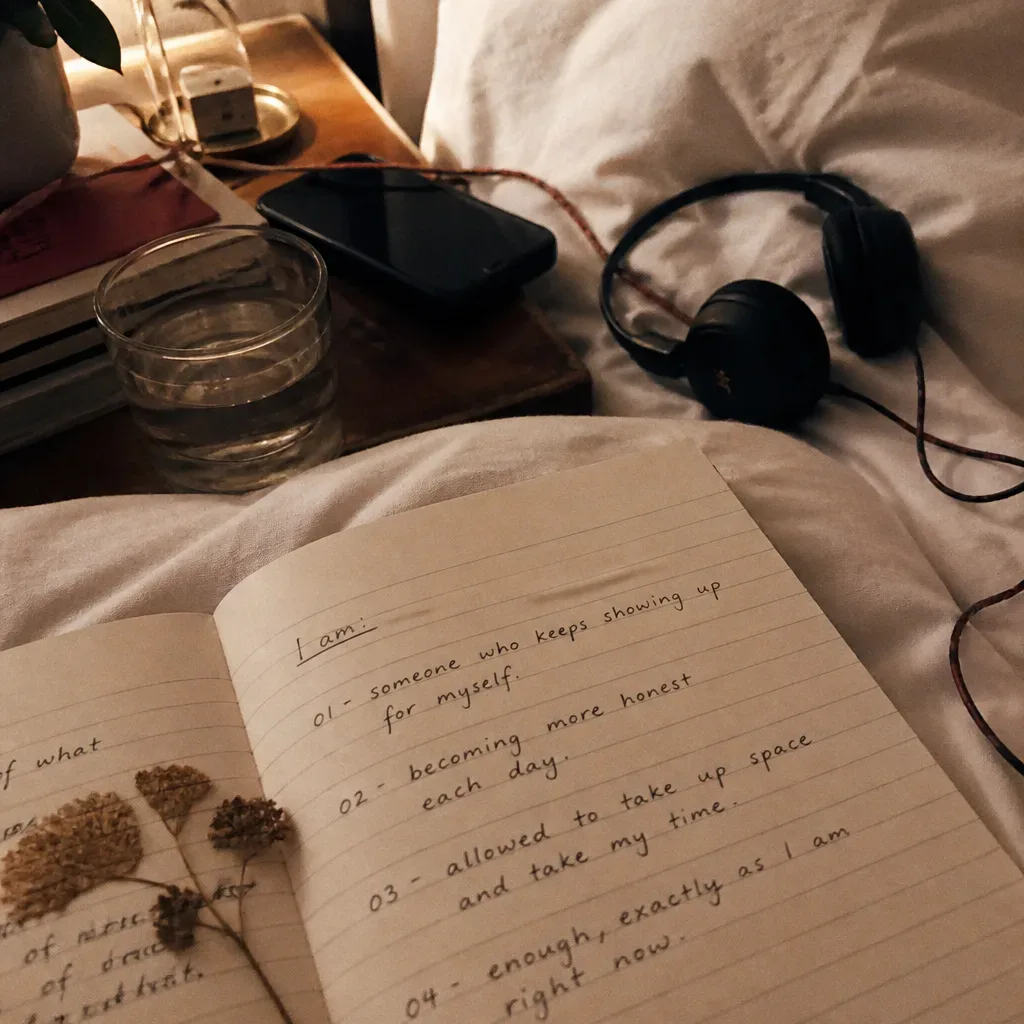 of what
of
of
I am:
01 - someone who keeps showing up
for myself.
02 - becoming more honest
each day.
03 - allowed to take up space
and take my time.
04 - enough, exactly as I am
right now.